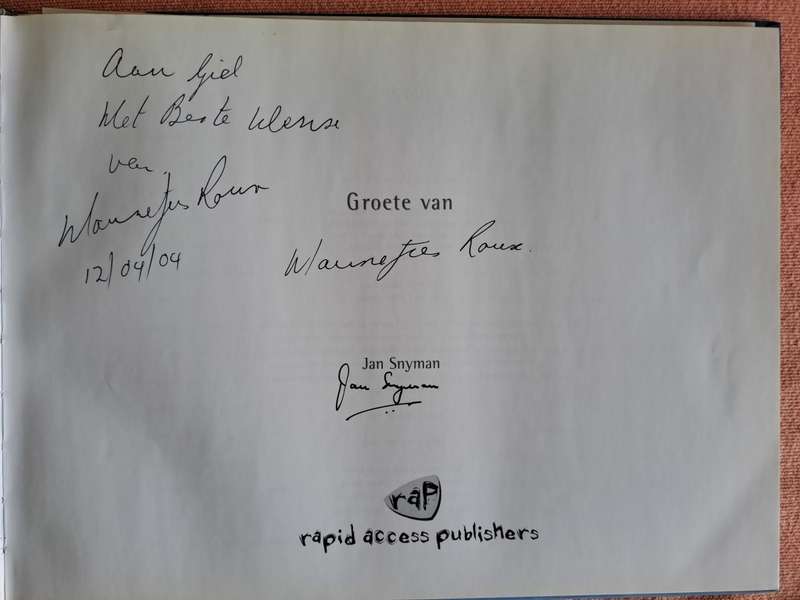 Aan Giel
Met Beste Wense
van
Mannetjies Roux
12/04/04
Groete van
Mannetjies Roux.
Jan Snyman
Jan Snyman
rap
rapid access publishers